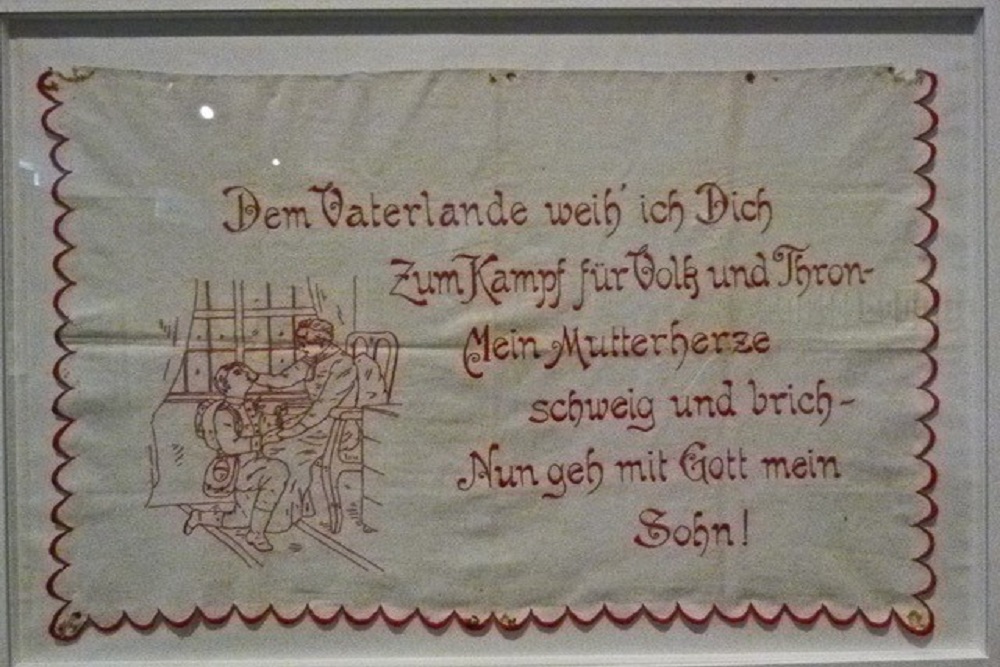 Dem Vaterlande weih' ich Dich
Zum Kampf für Volk und Thron-
Mein Mutterherze
schweig und brich-
Nun geh mit Gott mein
Sohn!